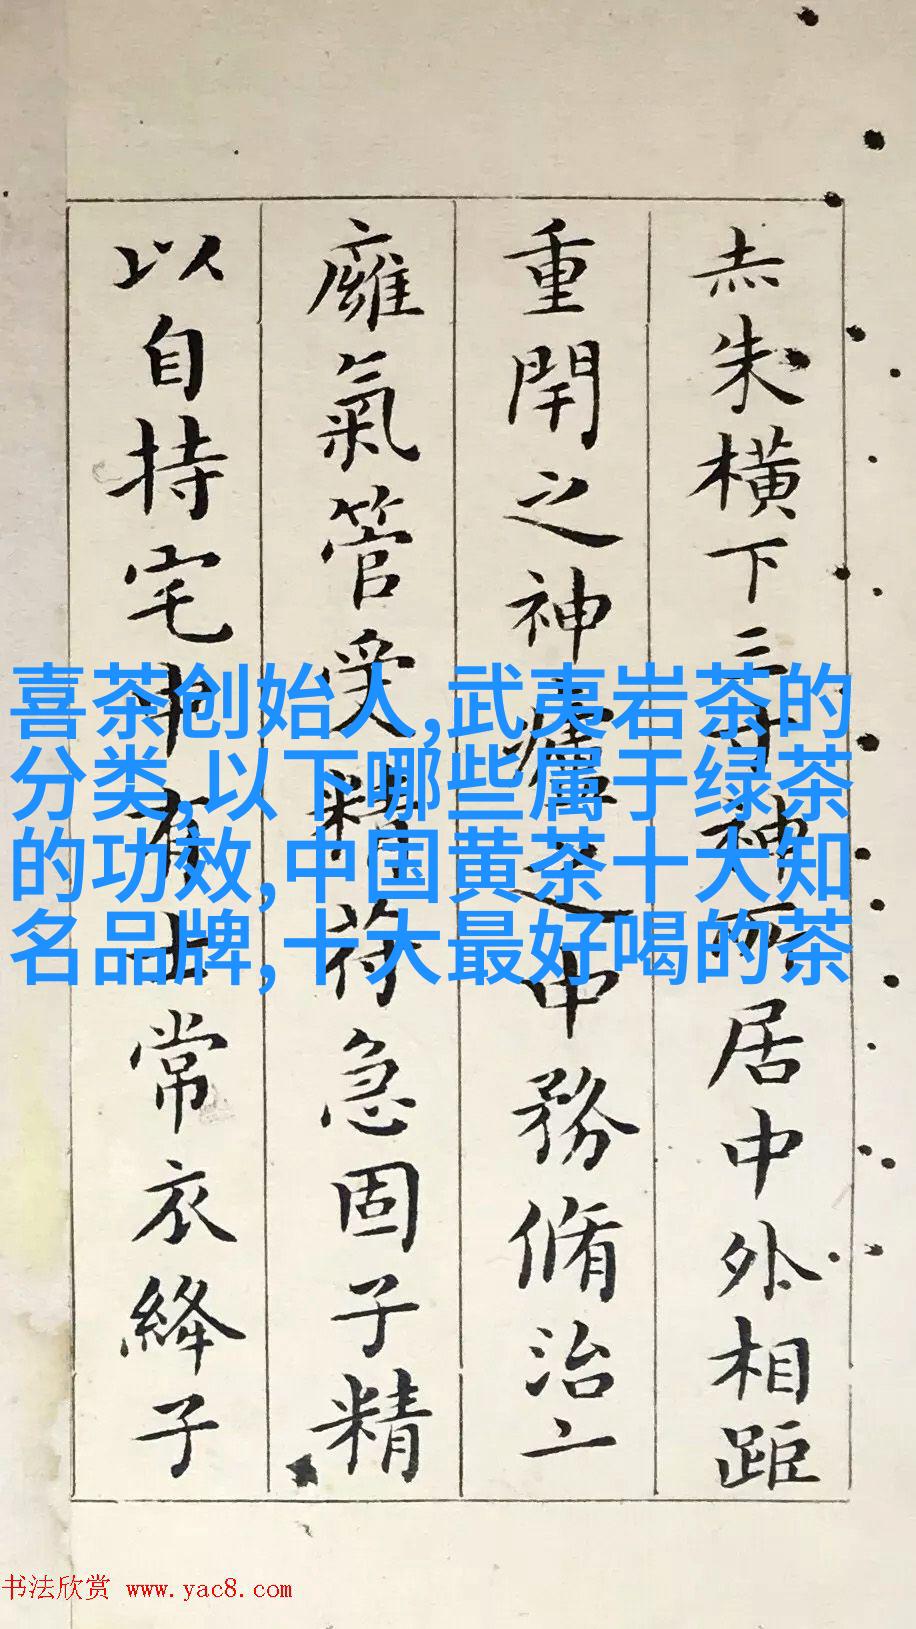 赤朱橫下三寸神所居中外相距
重閈之神廬之中務脩治二
廱氣管受精符急固子精
以自持宅中有士常衣絳子
喜茶创始人,武夷岩茶的
分类,以下哪些属于绿茶
的功效,中国黄茶十大知
名品牌,十大最好喝的茶
书法欣赏 www.yac8.com